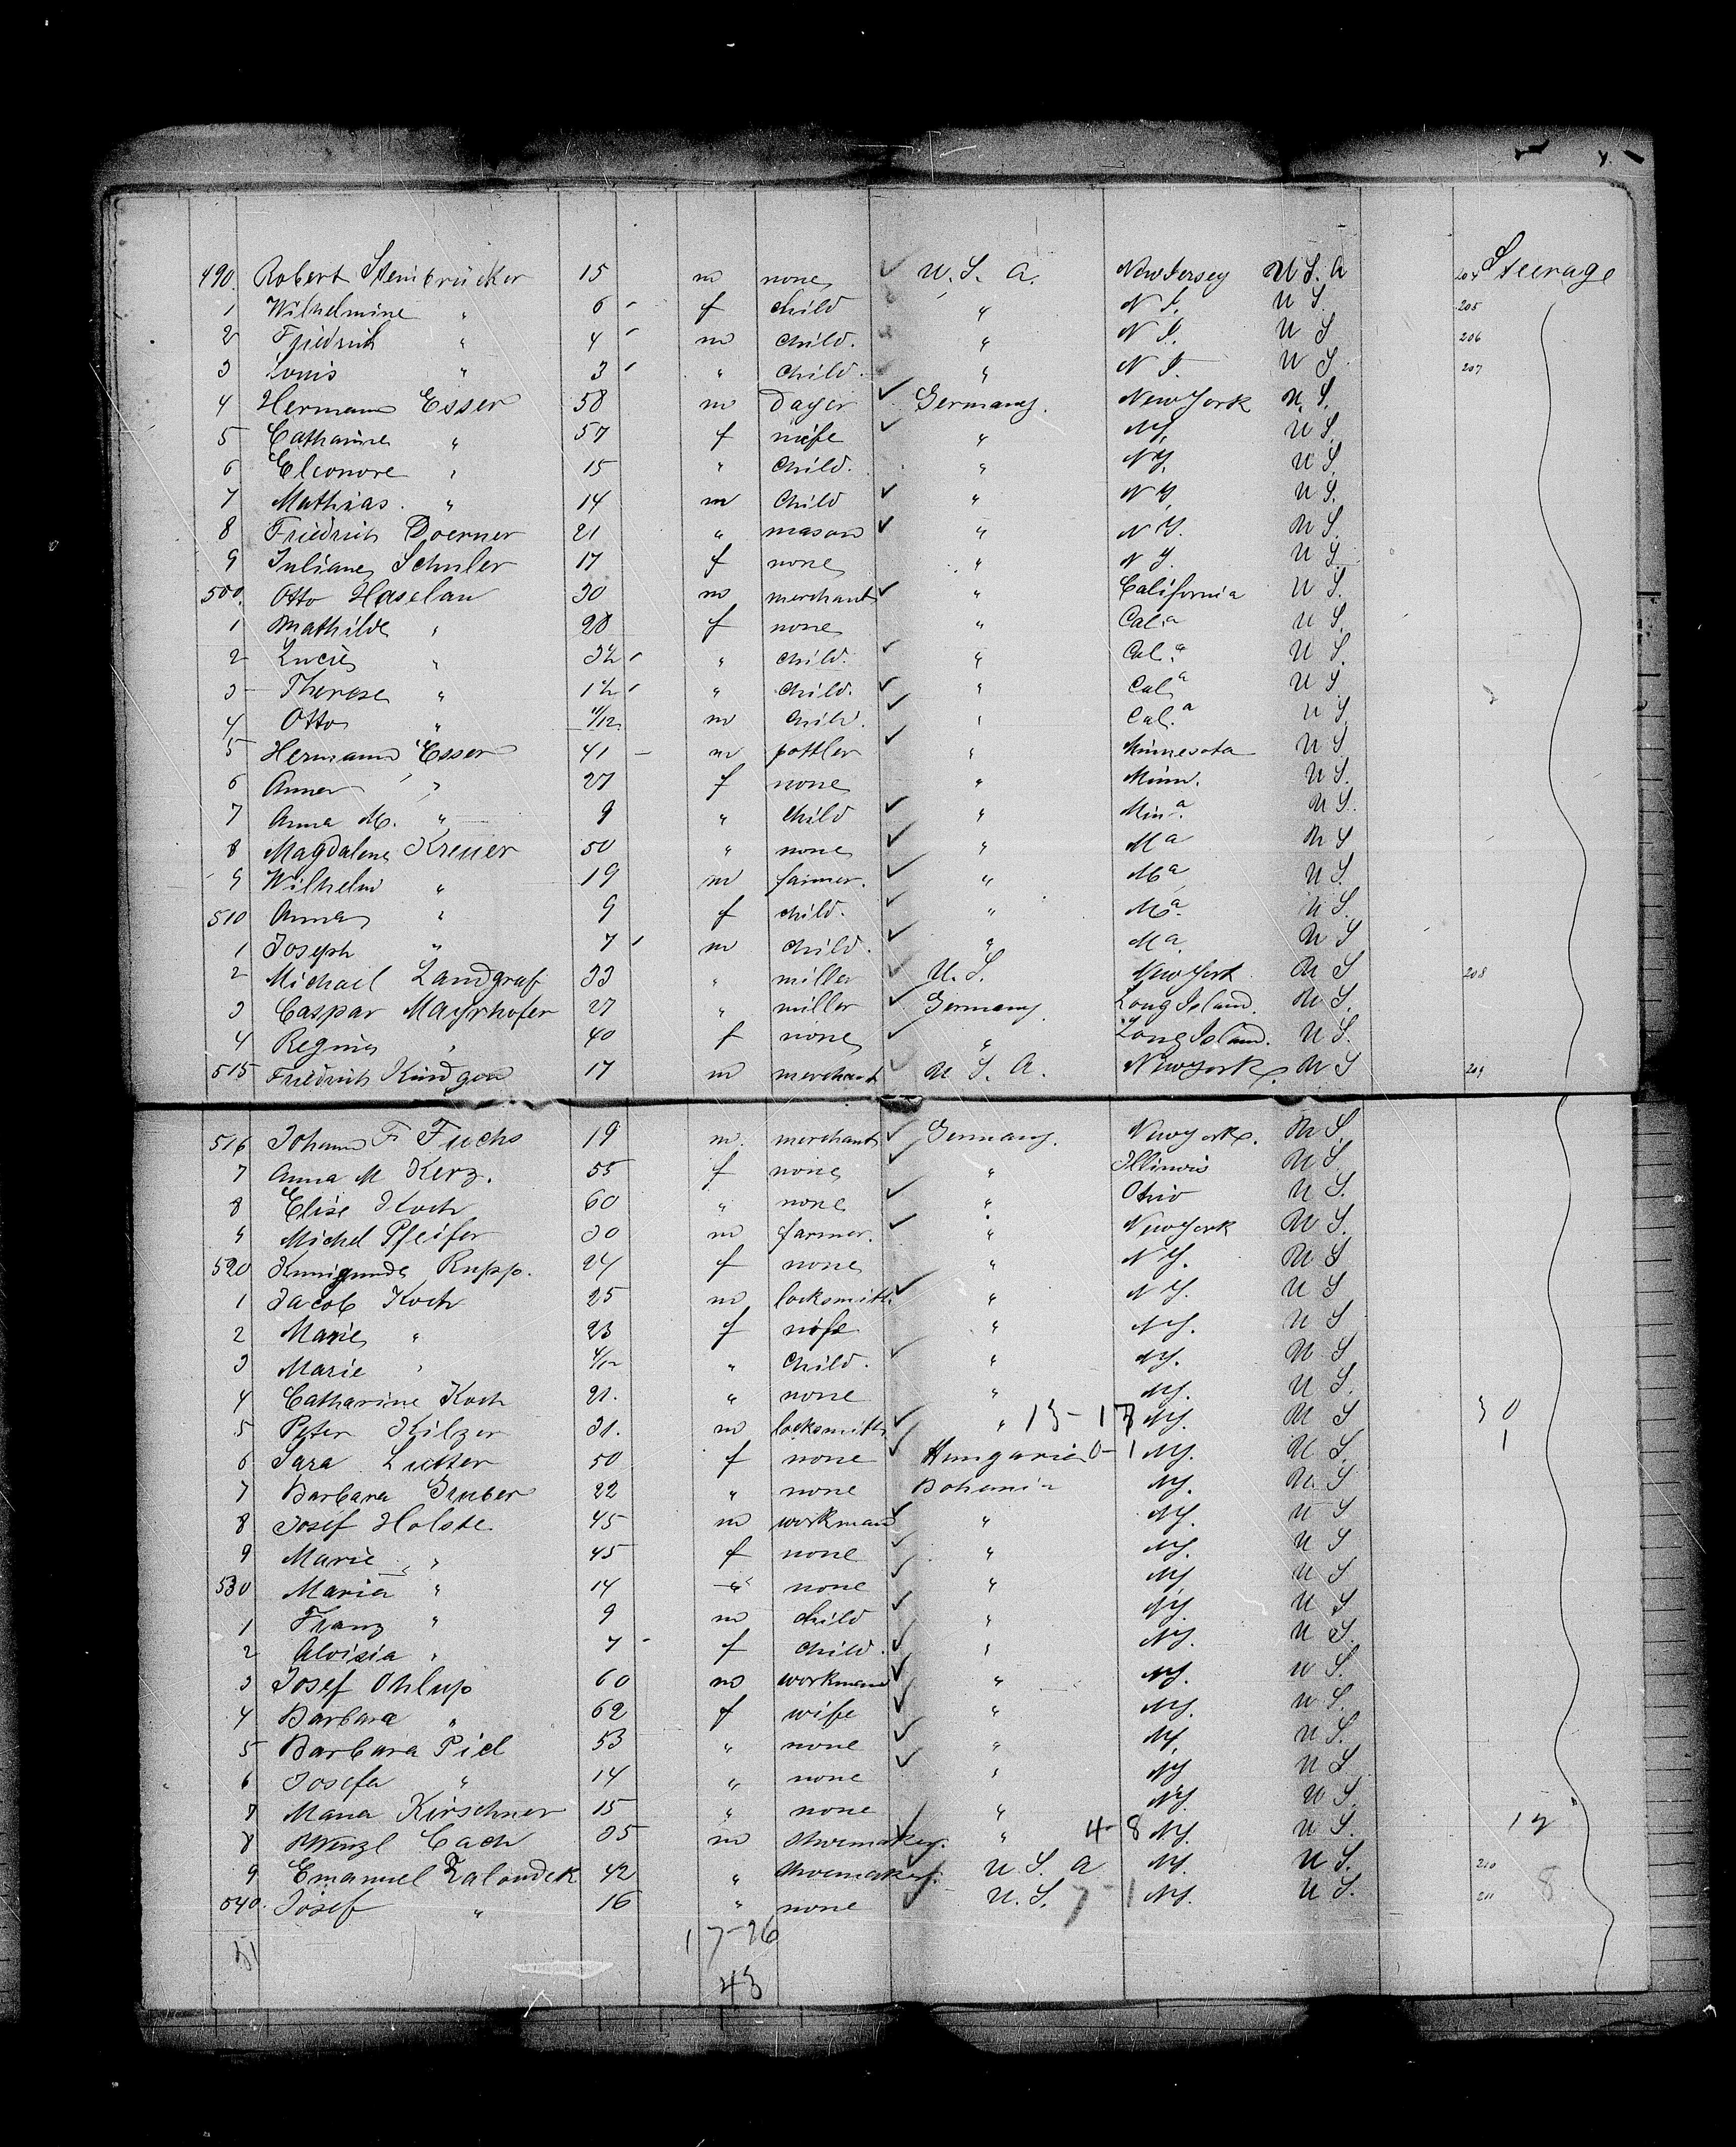 490. Robert Steinbrücker 15 m none U. S. A. New Jersey U S. A 204 Steerage
1 Wilhelmine " 6 f child " N J. U S. 205
2 Friedrich " 4 m child. " N J. U S 206
3 Louis " 3 " child. " N J. U S 207
4 Hermann Esser 58 m Dayer Germany. New York U. S.
5 Catharine " 57 f wife " NY. U S.
6 Eleonore " 15 " child. " NY. U S.
7 Mathias. " 14 m child " N Y U S.
8 Friedrich Doerner 21 " mason " N Y. U S.
9 Juliane Schuler 17 f none " N Y. U S.
500. Otto Haselau 30 m merchant " California U S.
1 Mathilde " 28 f none " Cal.a U S.
2 Lucie " 3½ " child. " Cal.a U S.
3 Therese " 1½ " child. " Cal.a U S
4 Otto " 11/12 m child. " Cal.a U S
5 Hermann Esser 41 m pottler " Minnesota U S
6 Anna " 27 f none " Minn. U S.
7 Anna M. " 9 " child " Min.a U S.
8 Magdalena Kreuer 50 " none " Ma U S
9 Wilhelm " 19 m farmer. " Ma U S.
510 Anna " 9 f child. " Ma. U S.
1 Joseph " 7 m child. " Ma. U S
2 Michael Landgraf 33 " miller U. S. New York U S 208
3 Caspar Mayrhofer 27 " miller Germany. Long Island. U S.
4 Regina " 40 f none " Long Island. U S.
515 Friedrich 17 m merchant U S. A. New York. U S 209
516 Johann F. Fuchs 19 m. merchant Germany. New York. U S.
7 Anna M Kerz. 55 f none " Illinois U S.
8 Elise Koch 60 " none " Ohio U S.
9 Michel Pfeifer 30 m farmer. " New York U S.
520 Kunigunde Rupp. 24 f none " N Y. U S
1 Jacob Koch 25 m locksmith. " N Y. U S
2 Marie " 23 f wife " NY. U S
3 Marie " 4/12 " child. " NY. U S
4 Catharine Koch 21. " none " NY. U S.
5 Peter Kilzer 31. m locksmith " 13-17 NY. U S 30
6 Sara Lutter 50 f none Hungaria 0-1 NY. U S. 1
7 Barbara Gruber 22 " none Bohemia NY. U. S
8 Josef Holste 45 m workman " NY. U S
9 Marie " 45 f none " NY. U S
530 Maria " 14 " none " NY U S
1 Franz " 9 m child " NY. U S
2 Aloisia " 7 f child. " NY. U S.
3 Josef Ohlup 60 m workman " NY. U S.
4 Barbara " 62 f wife " NY. U S.
5 Barbara Piel 53 " none " NY. U S.
6 Josefa " 14 " none " NY U S
7 Maria Kirschner 15 " none " NY. U S.
8 Wenzl Cach 35 m shoemaker. " 4-8 NY. U S. 12
9 Emanuel Zaloudek 42 " shoemaker. U S. A NY. U S. 210
540. Josef " 16 " none U. S. 7-1 NY. U S. 211 8
51 17-26
43